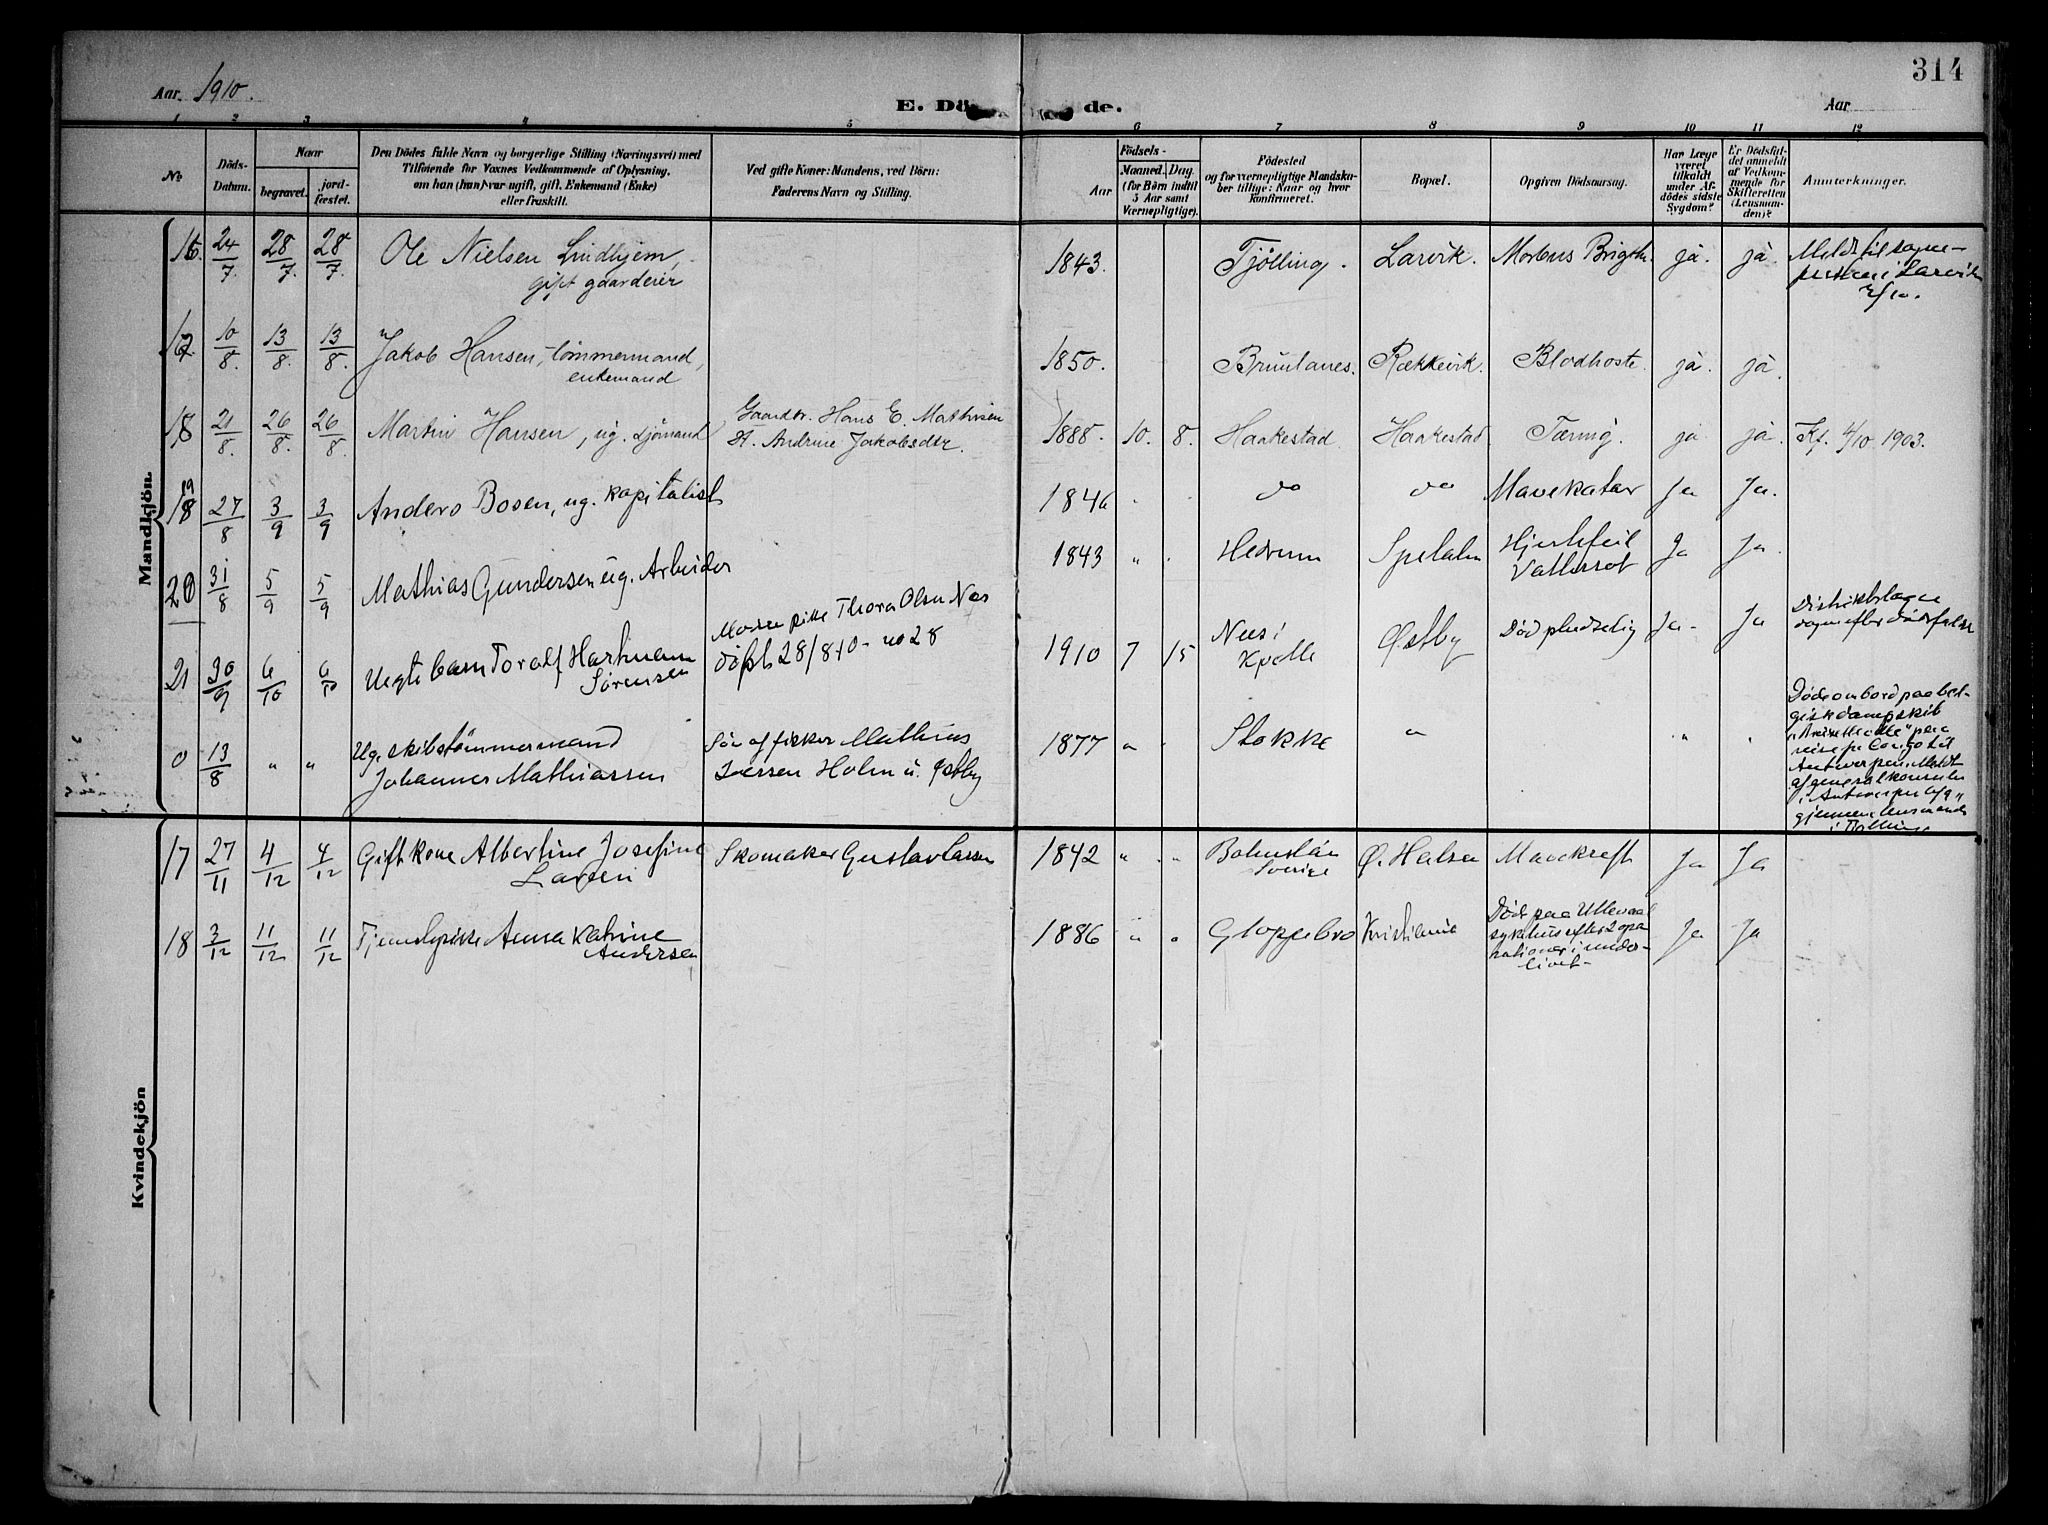 314
Aar. 1910.
E. Dö de.
Aar
1 2 3 4 5 6 7 8 9 10 11 12
No
Döds-
Datum.
Naar
begravet.
jord-
fæstet.
Den Dödes fulde Navn og borgerlige Stilling (Næringsvei) med
Tilföiende for Voxnes Vedkommende af Oplysning,
om han (hun) var ugift, gift, Enkemand (Enke)
eller fraskilt.
Ved gifte Koner: Mandens, ved Börn:
Faderens Navn og Stilling.
Födsels-
Aar
Maaned. Dag.
(for Börn indtil
5 Aar samt
Værnepligtige).
Födested
og for værnepligtige Mandska-
ber tillige: Naar og hvor
konfirmeret.
Bopæl.
Opgiven Dödsaarsag.
Har Læge
været
tilkaldt
under Af-
dödes sidste
Sygdom?
Er Dödsfal-
det anmeldt
af Vedkom-
mende for
Skifteretten
(Lensman-
den)?
Anmærkninger.
Mandkjön.
16. 24/7 28/7. 28/7. Ole Nielsen Lindhjem, 1843. Tjölling. Larvik. Morbus Brigthi. ja. ja. Meldt til sogne-
gift gaardeier
presten i Larvik
17 10/8. 13/8. 13/8. Jakob Hansen, tömmermand, 1850. Brunlanes. Rækkevik. Blodhoste. ja. ja.
enkemand
18 21/8. 26/8. 26/8. Martin Hansen, ug. sjömand Gaardbr. Hans E. Mathisen 1888. 10. 8. Haakestad. Haakestad Tæring. ja ja. Kf. 4/10 1903.
H. Andrine Jakobsdtr.
19 27/8 3/9 3/9 Anders Bosen, ug. kapitalist 1846 do do Mavekatar Ja Ja.
20 31/8 5/9 5/9 Mathias Gundersen ug. Arbeider 1843 " Hedrum Hjertefeil Ja Ja.
Vattersot
21 30/9 6/10 6/10 Uegte barn Toralf Hartmann Moder pike Thora Olsen Nes 1910 7 15 Nes i Østby Død pludselig Ja- Ja Distriktslæge
Sørensen døbt 28/8 10 - no 28 Kvelle
0 13/8 " " Ug. skibstømmermand Søn af fisker Mathias 1877 " Stokke " " Døde ombord paa bel-
Johannes Mathiassen Iversen Holm u. Østby
gisk dampskib
paa
reise fr Congo til
Antwerpen. Meldt
af generalkonsulen
i Antwerpen
gjennem lensmanden
i Tjølling
Kvindekjön
17 27/11 4/12 4/12 Gift kone Albertine Josefine Skomaker Gustav Larsen 1842 " " Bohuslän Ø. Halsen Mavekreft Ja Ja
Larsen Sverige
18 3/12 11/12 11/12 Tjenestepike Anna Katrine 1886 " " Gloppebro Kristiania Død paa Ullevaal Ja Ja
Andersen
sykehus efter 2 ope-
rationer i under-
livet-